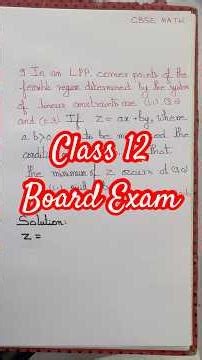 CBSE MATH
9 In an LPP, corner points of the
feasible region determined by the system
of linear constraints are (1,1) (3,0)
and (0,3) If Z = ax+by, where
a, b> to be the
condi that
the minimum of Z occurs at (3,0)
Class 12
Board Exam
Solution:
Z =